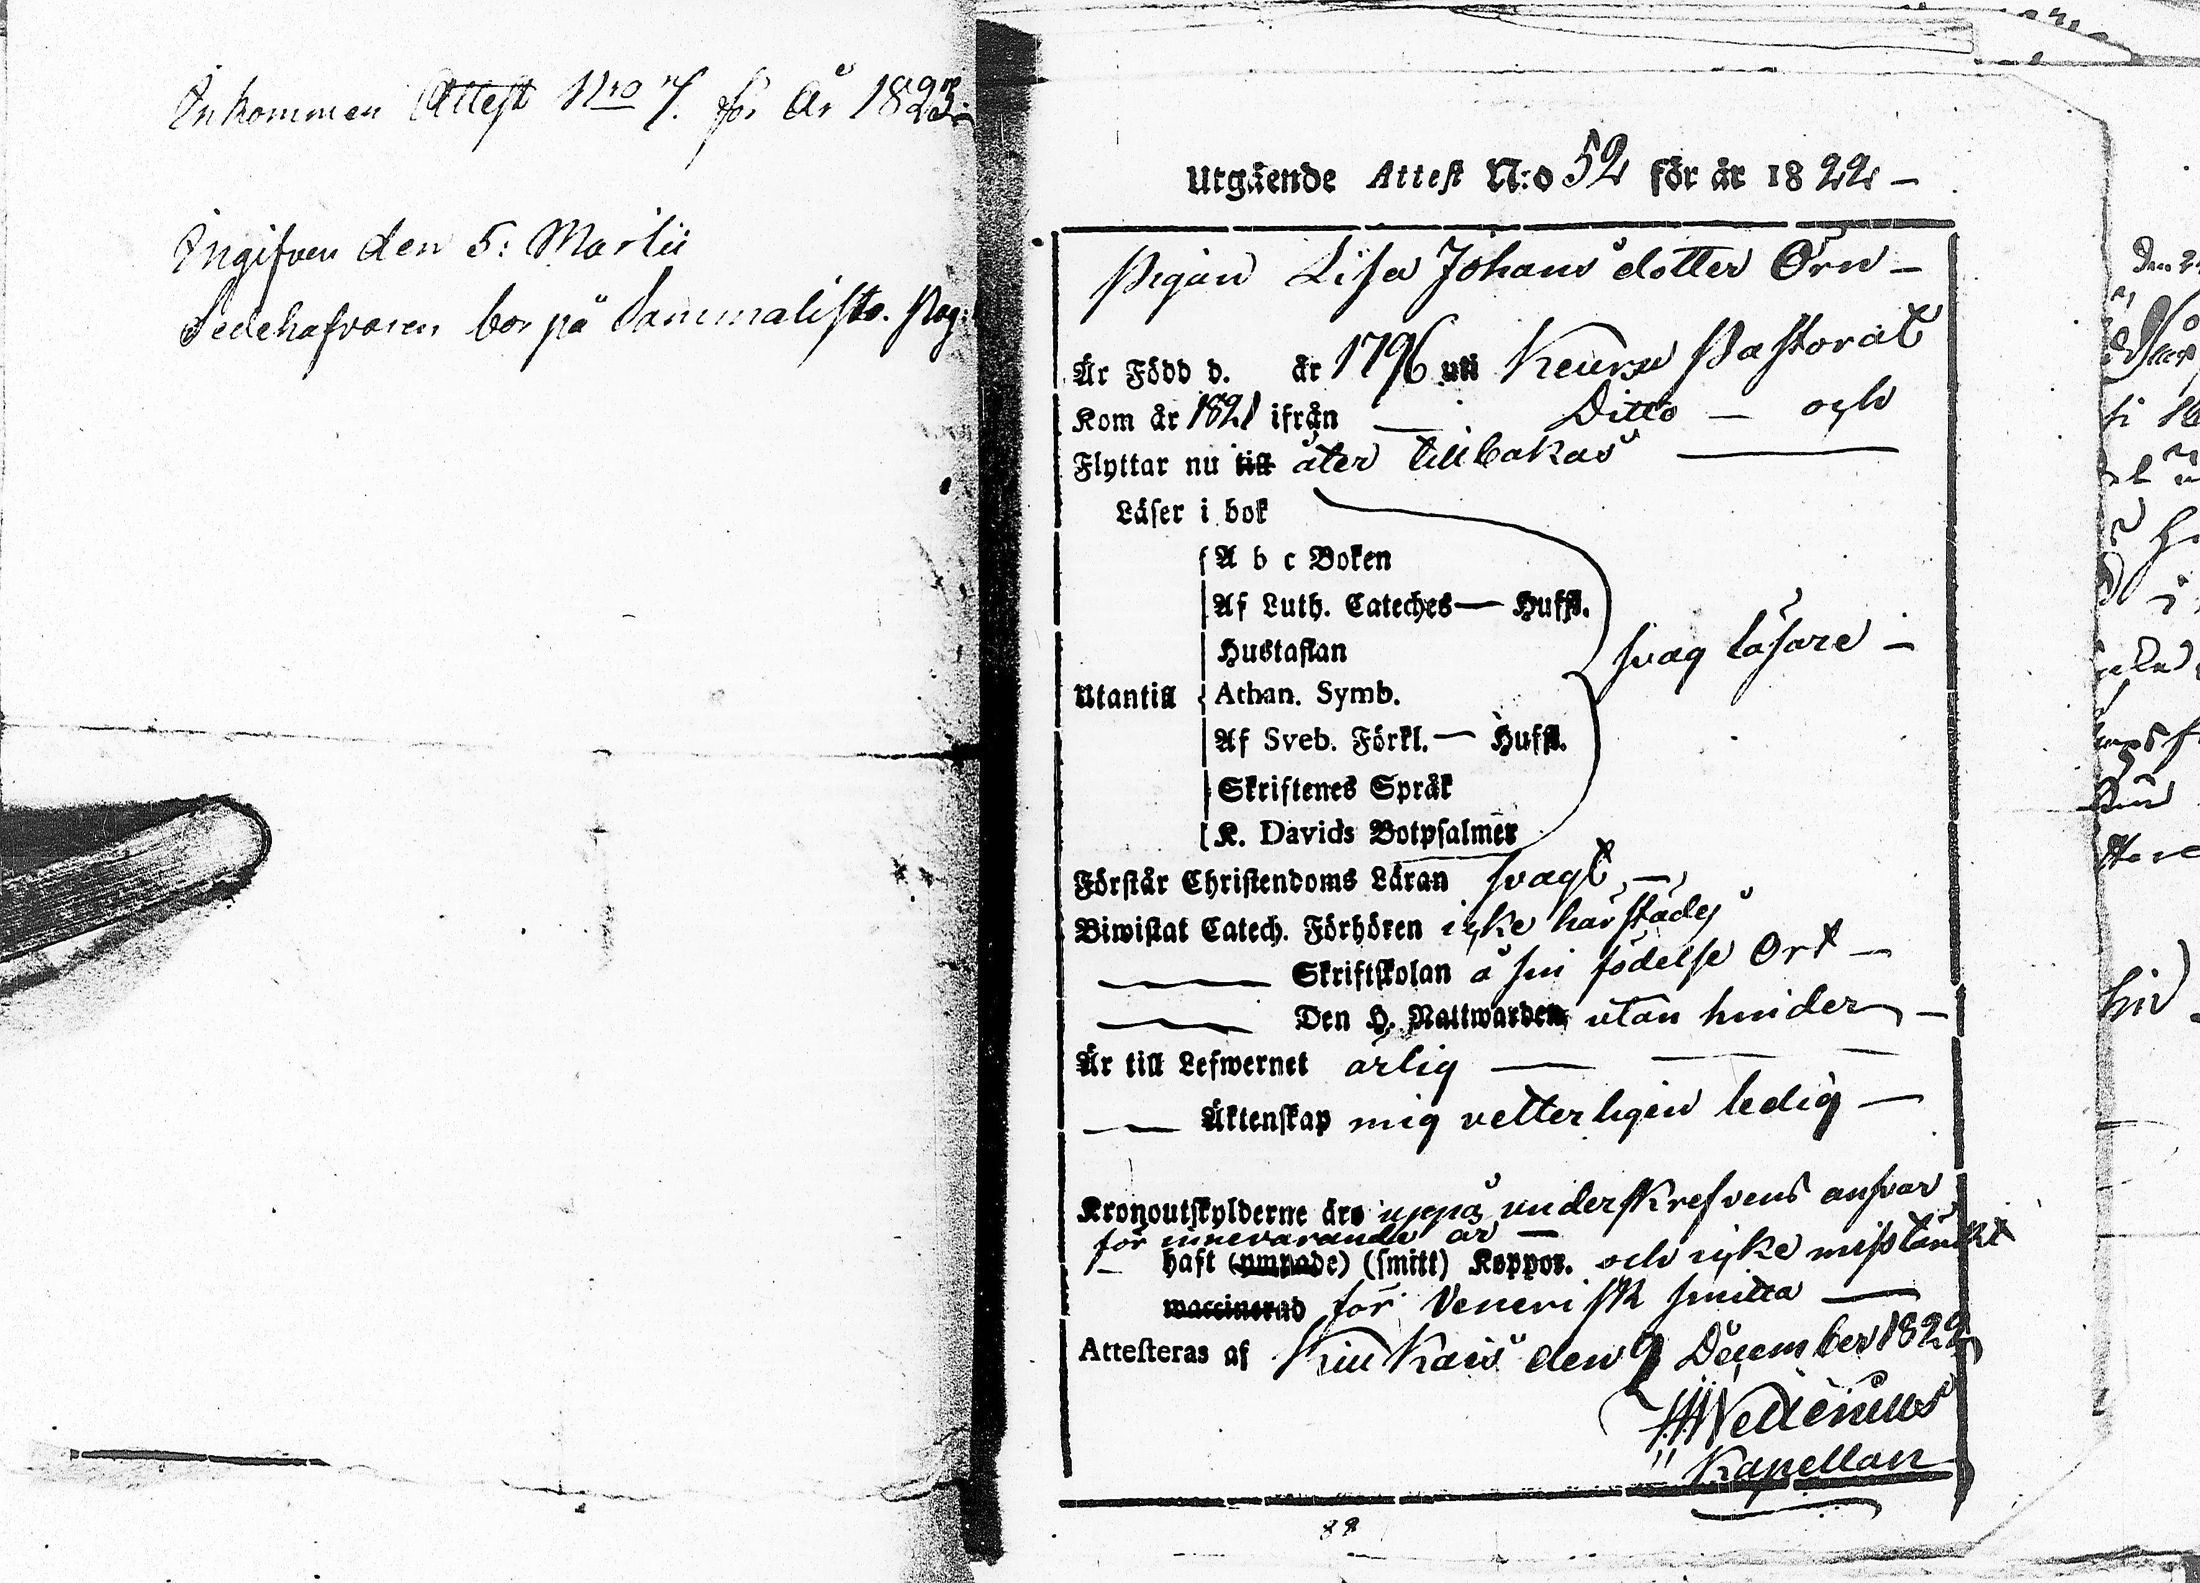 Inkommen Attest Nro 7. för År 1823.
Ingifven den 5: Martii
Sedelhafvaren bor på Sammalisto.
Utgående Attest N:o 52 för år 1822 –
Pigan Lisa Johansdotter Örn –
Är Född d. år 1796 uti Keuru Pastorat
Kom år 1821 ifrån — Ditto — och
Flyttar nu till åter tillbakas —
Läser i bok
A b c Boken
Af Luth. Cateches — Hufst.
Hustaflan
svag läsare –
Utantill Athan. Symb.
Af Sveb. Förkl. — Hufst.
Skriftenes Språk
K. Davids Botpsalmer
Förstår Christendoms Läran svagt –
Biwistat Catech. Förhören icke härstädes
— Skriftskolan å sin födelse Ort –
— Den H. Nattwarden utan hinder –
Är till Lefwernet ärlig —
— Äktenskap mig vetterligen ledig —
Kronoutskylderne äro uppå underskrefvens ansvar
för innevarande år —
haft (ympade) (smitt) Koppor. och icke misstänkt
waccinerad för Venerisk smitta —
Attesteras af Kiukais den 9 December 1822
Kapellan